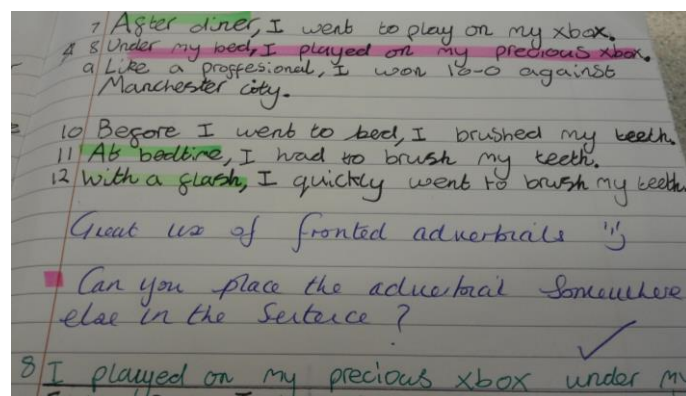 7 After diner, I went to play on my xbox.
8 Under my bed, I played on my precious xbox.
9 Like a proffesional, I won 10-0 against
Manchester city.
10 Before I went to bed, I brushed my teeth.
11 At bedtime, I had to brush my teeth.
12 With a flash, I quickly went to brush my teeth.
Great use of fronted adverbials
Can you place the adverbial somewhere
else in the sentence?
8 I played on my precious xbox under my